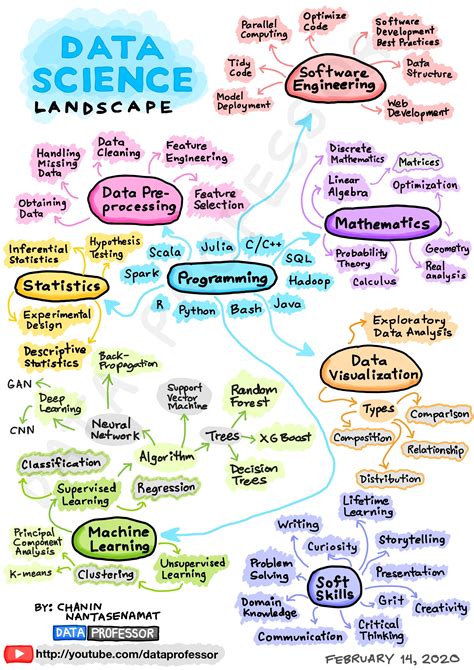 DATA
SCIENCE
LANDSCAPE
Parallel
Computing
Optimize
Code
Software
Development
Best Practices
Tidy
Code
Software
Engineering
Data
Structure
Model
Deployment
Web
Development
Data
Cleaning
Feature
Engineering
Handling
Missing
Data
Data Pre-
processing
Feature
Selection
Obtaining
Data
Discrete
Mathematics
Matrices
Linear
Algebra
Optimization
Mathematics
Probability
Theory
Geometry
Real
analysis
Calculus
Inferential
Statistics
Hypothesis
Testing
Statistics
Experimental
Design
Descriptive
Statistics
Scala
Julia
C/C++
SQL
Spark
Programming
Hadoop
R
Python
Bash
Java
Exploratory
Data Analysis
Data
Visualization
Types
Comparison
Composition
Relationship
Distribution
Back-
Propagation
GAN
Deep
Learning
CNN
Neural
Network
Support
Vector
Machine
Random
Forest
Algorithm
Trees
XG Boast
Decision
Trees
Classification
Supervised
Learning
Regression
Machine
Learning
Principal
Component
Analysis
K-means
Clustering
Unsupervised
Learning
Lifetime
Learning
Writing
Curiosity
Storytelling
Problem
Solving
Presentation
Soft
Skills
Domain
Knowledge
Grit
Creativity
Communication
Critical
Thinking
BY: CHANIN
NANTASENAMAT
DATA PROFESSOR
http://youtube.com/dataprofessor
FEBRUARY 14, 2020
DATA PROFESSOR